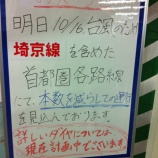 明日10/16 台風のため
埼京線を含めた
首都圏各路線
にて本数を減らしての運行
を見込んでおります。
詳しいダイヤについては、
現在計画中でございます。